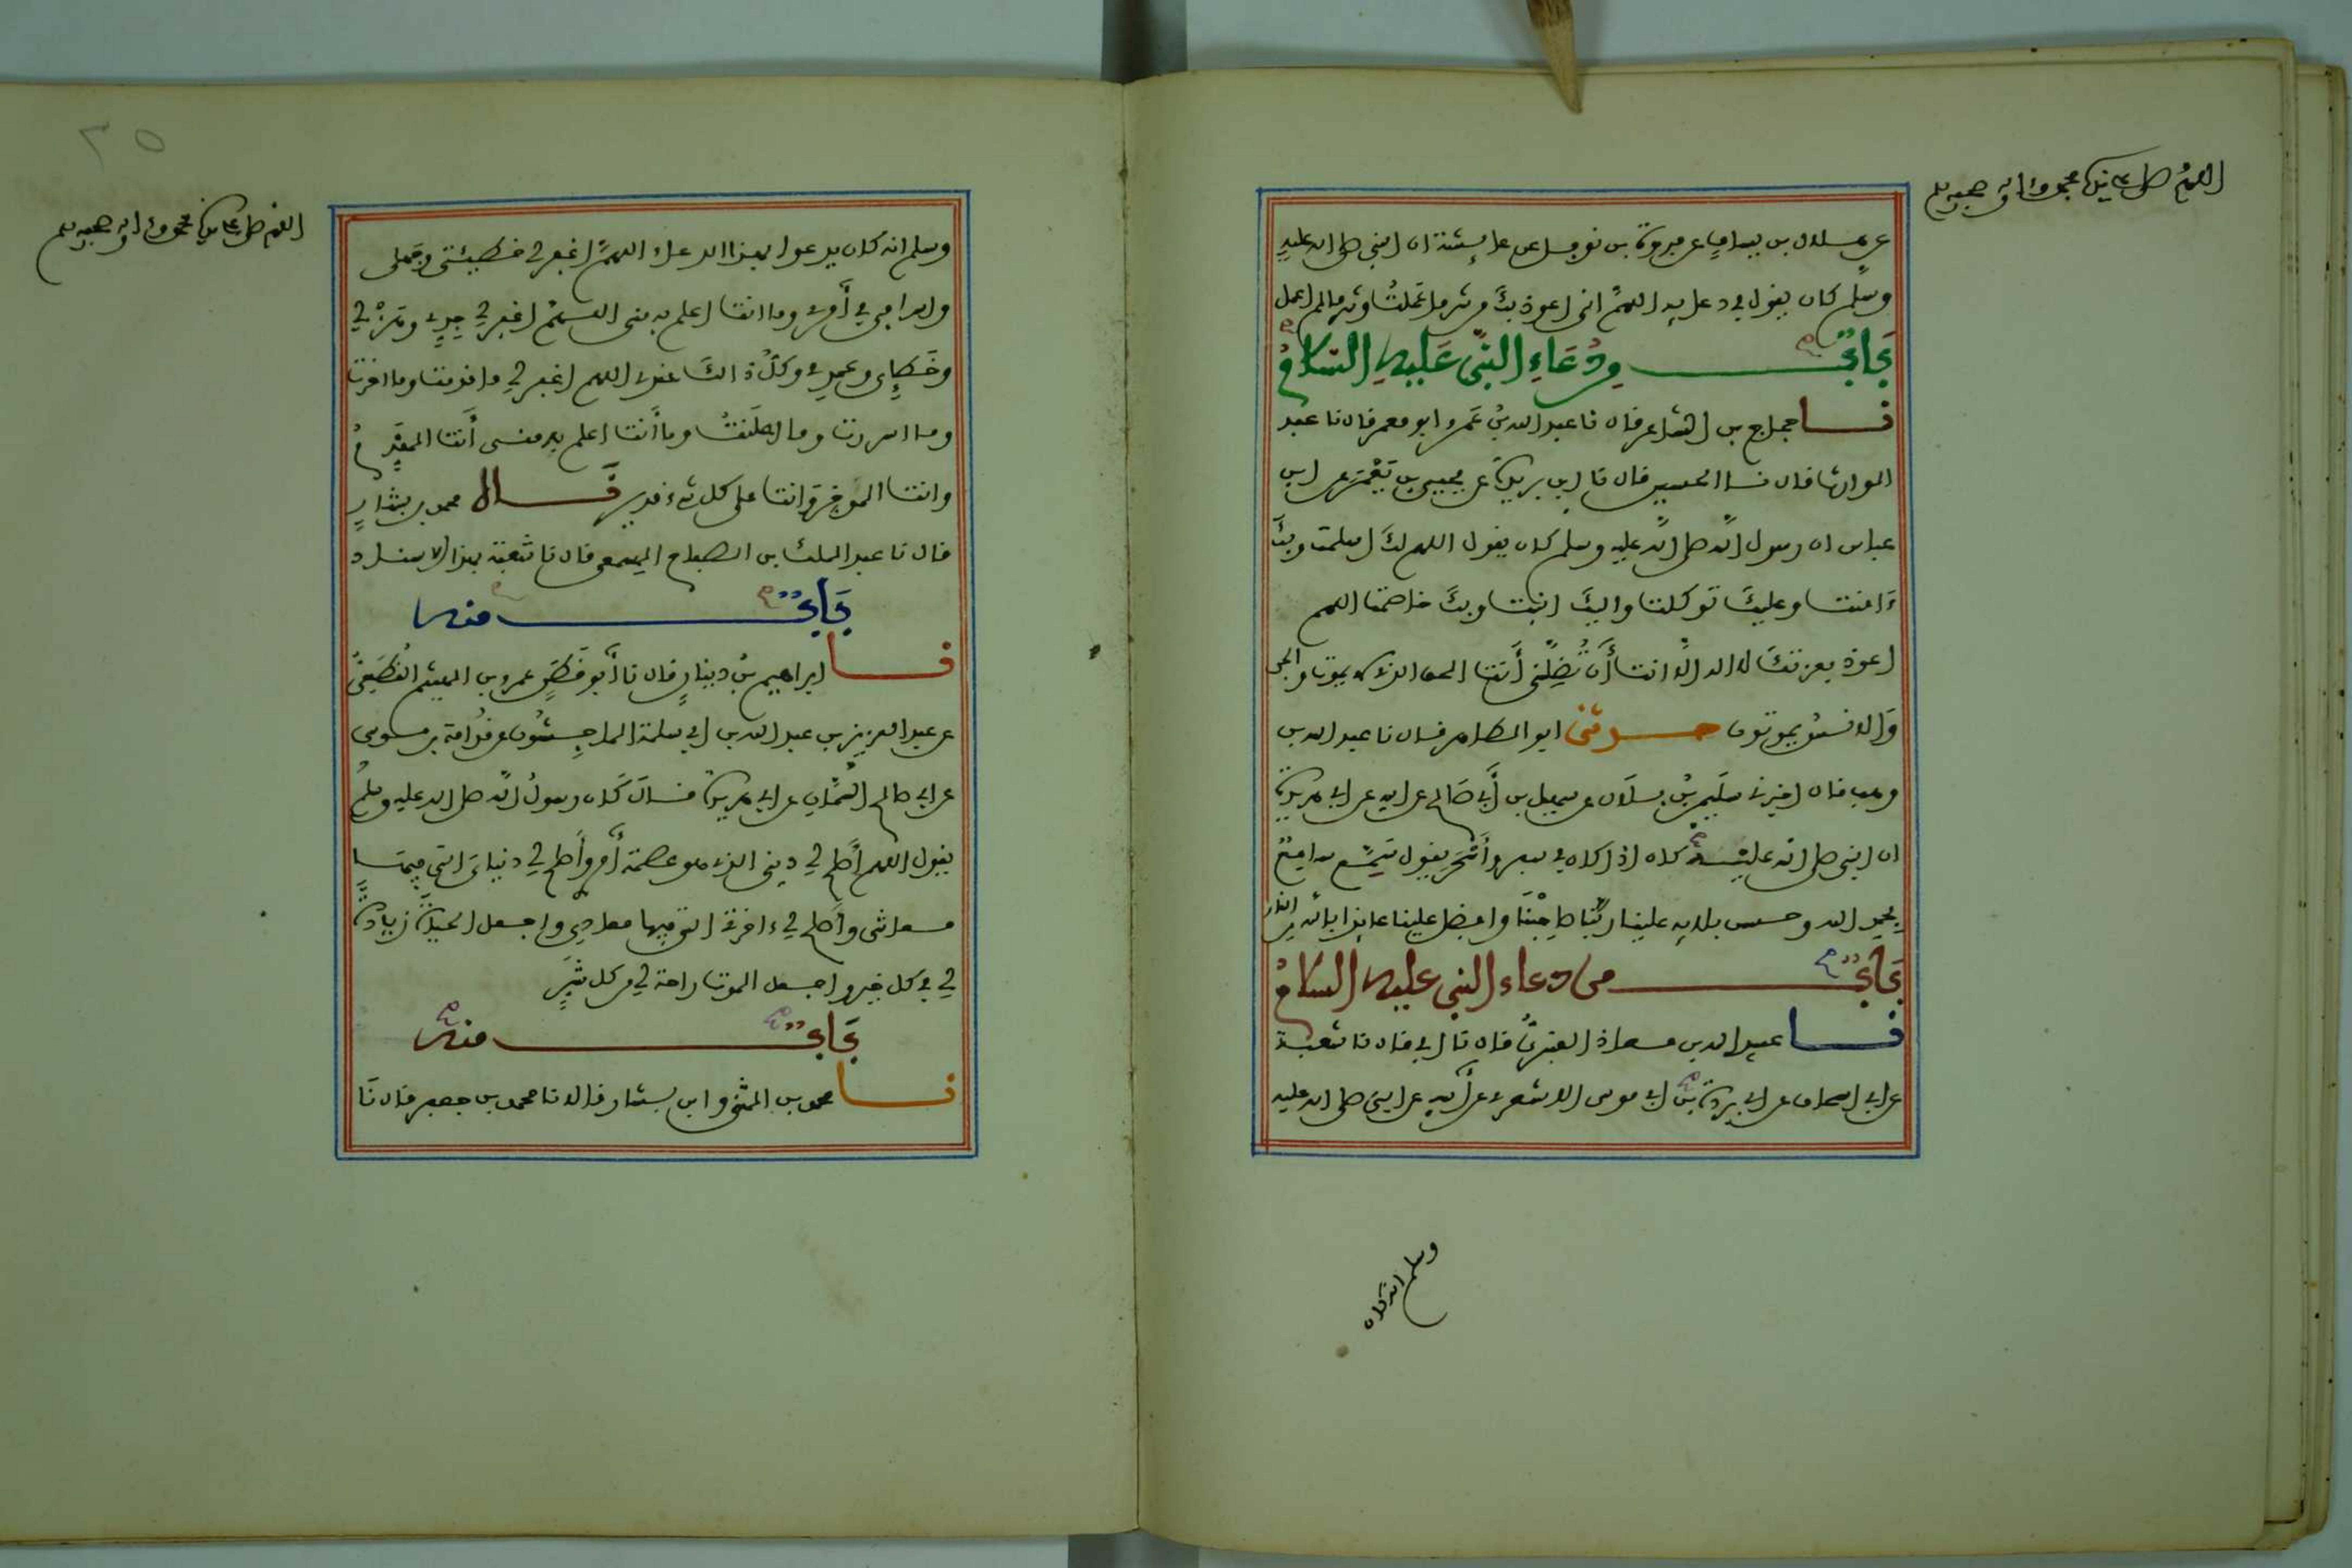 اللهم صل على سيدنا محمد وءاله وصحبه وسلم
عن هلال بن يساف عن فروة بن نوفل عن عايشة ان النبي صلى الله عليه
وسلم كان يقول في دعايه اللهم اني اعوذ بك من شر ما عملت وشر ما لم اعمل
باب في دعاء النبي عليه السلام
نا حجاج بن الشاعر قال نا عبد الله بن عمرو ابو معمر قال نا عبد
الوارث قال نا الحسين قال نا ابن بريدة عن يحيى بن يعمر عن ابن
عباس ان رسول الله صلى الله عليه وسلم كان يقول اللهم لك اسلمت وبك
ءامنت وعليك توكلت واليك انبت وبك خاصمت اللهم
اعوذ بعزتك لا اله الا انت أن تضلني أنت الحي الذي لا يموت والجن
والانس يموتون حدثني ابو الطاهر قال نا عبد الله بن
وهب قال اخبرني سليمن بن بلال عن سهيل بن أبي صالح عن ابيه عن ابي هريرة
ان النبي صلى الله عليه كان اذا كان في سفر وأسحر يقول سمع سامع
بحمد الله وحسن بلايه علينا ربنا صاحبنا وافضل علينا عايذا بالله من النار
باب من دعاء النبي عليه السلام
نا عبيد الله بن معاذ العنبري قال نا ابي قال نا شعبة
عن ابي اسحاق عن ابي بردة بن ابي موسى الاشعري عن أبيه عن النبي صلى الله عليه
وسلم انه كان
٢٥
اللهم صل على سيدنا محمد وءاله وصحبه وسلم
وسلم انه كان يدعو بهذا الدعاء اللهم اغفر لي خطيئتي وجهلي
واسرافي في أمري وما انت اعلم به مني اللهم اغفر لي جدي وهزلي
وخطإي وعمدي وكل ذالك عندي اللهم اغفر لي ما قدمت وما اخرت
وما اسررت وما اعلنت وما أنت اعلم به مني أنت المقدم
وانت الموخر وانت على كل شيء قدير قال محمد بن بشار
قال نا عبد الملك بن الصباح المسمعي قال نا شعبة بهذا الاسناد
باب منه
نا ابراهيم بن دينار قال نا أبو قطن عمرو بن الهيثم القطعي
عن عبد العزيز بن عبد الله بن ابي سلمة الماجشون عن قدامة بن موسى
عن ابي صالح السمان عن ابي هريرة قال كان رسول الله صلى الله عليه وسلم
يقول اللهم أصلح لي ديني الذي هو عصمة أمري وأصلح لي دنياي التي فيها
معاشي وأصلح لي ءاخرتي التي فيها معادي واجعل الحياة زيادة
لي في كل خير واجعل الموت راحة لي من كل شر
باب منه
نا محمد بن المثنى وابن بشار قالا نا محمد بن جعفر قال نا